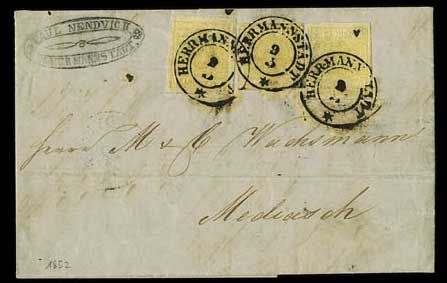 PAUL NENDVICH
HERRMANNSTADT.
HERRMANNSTADT
9
3
HERRMANNSTADT
9
3
HERRMANNSTADT
9
3
Herrn M & C Wachsmann
Mediasch
1852